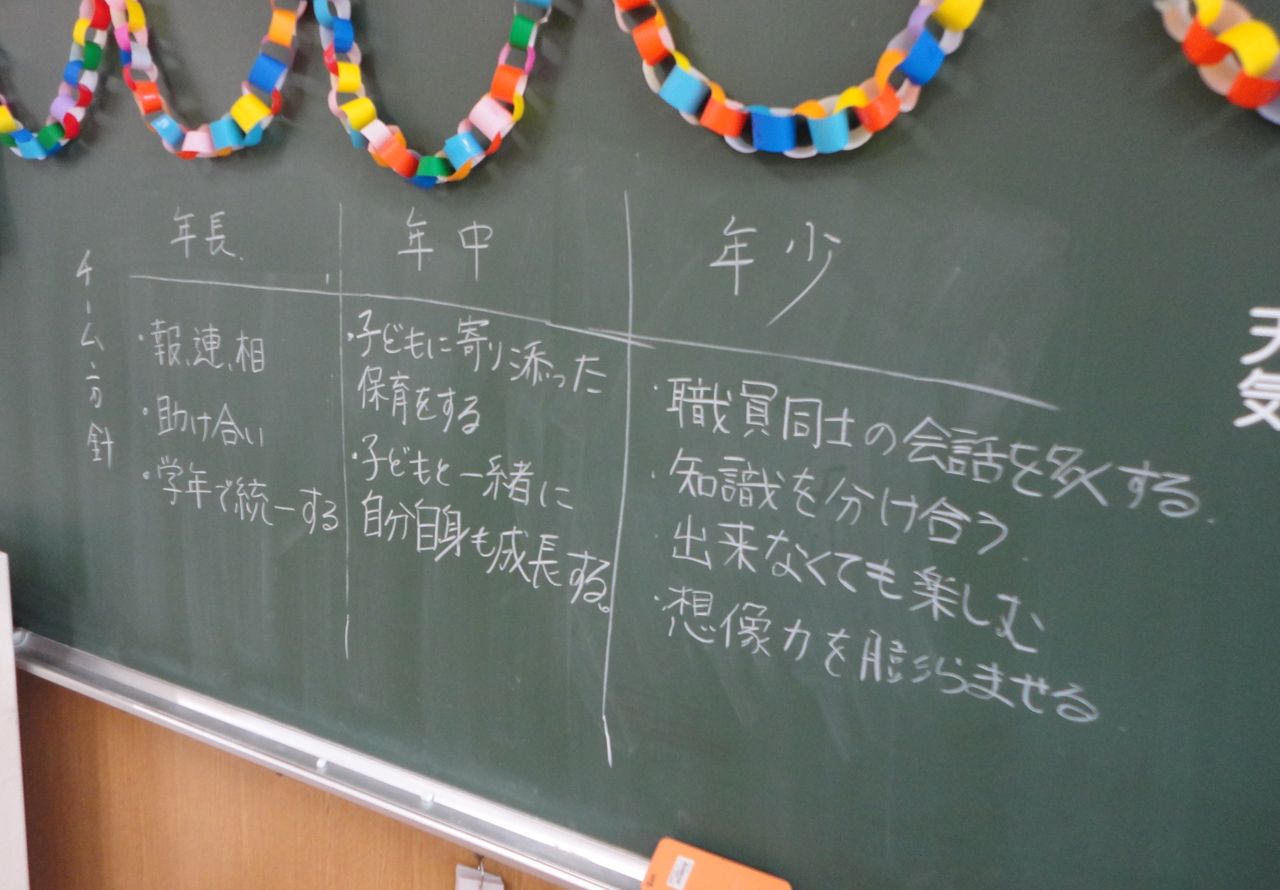 チーム方針
年長
・報、連、相
・助け合い
・学年で統一する
年中
・子どもに寄り添った
保育をする
・子どもと一緒に
自分自身も成長する。
年少
・職員同士の会話を多くする
・知識を分け合う
出来なくても楽しむ
・想像力を膨らませる
天
気